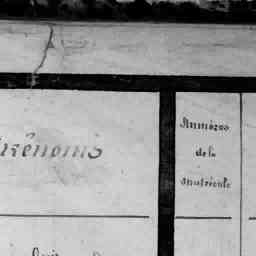 Prénoms
Numéros
de la
matricule